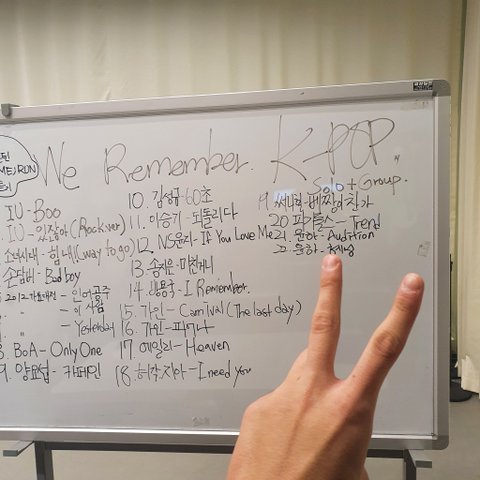 We Remember K-POP
Solo + Group.
MEJ RUN
IU - Boo
IU - 있잖아 (Rock ver.)
소녀시대 - 힘내 (way to go)
손담비 - Bad boy
2012 가요대전 - 인어공주
" " - 이 사람
" " - Yesterday
8. BoA - Only One
9. 양요섭 - 카페인
10. 김성규 - 60초
11. 이승기 - 되돌리다
12. NS윤지 - If You Love Me
13. 송지은 - 미친거니
14. 방용국 - I Remember
15. 가인 - Carnival (The last day)
16. 가인 - 피어나
17. 에일리 - Heaven
18. 허각, 지아 - I need you
19.
20. 피기돌스 - Trend
21. 윤하 - Audition
22. 윤하 -